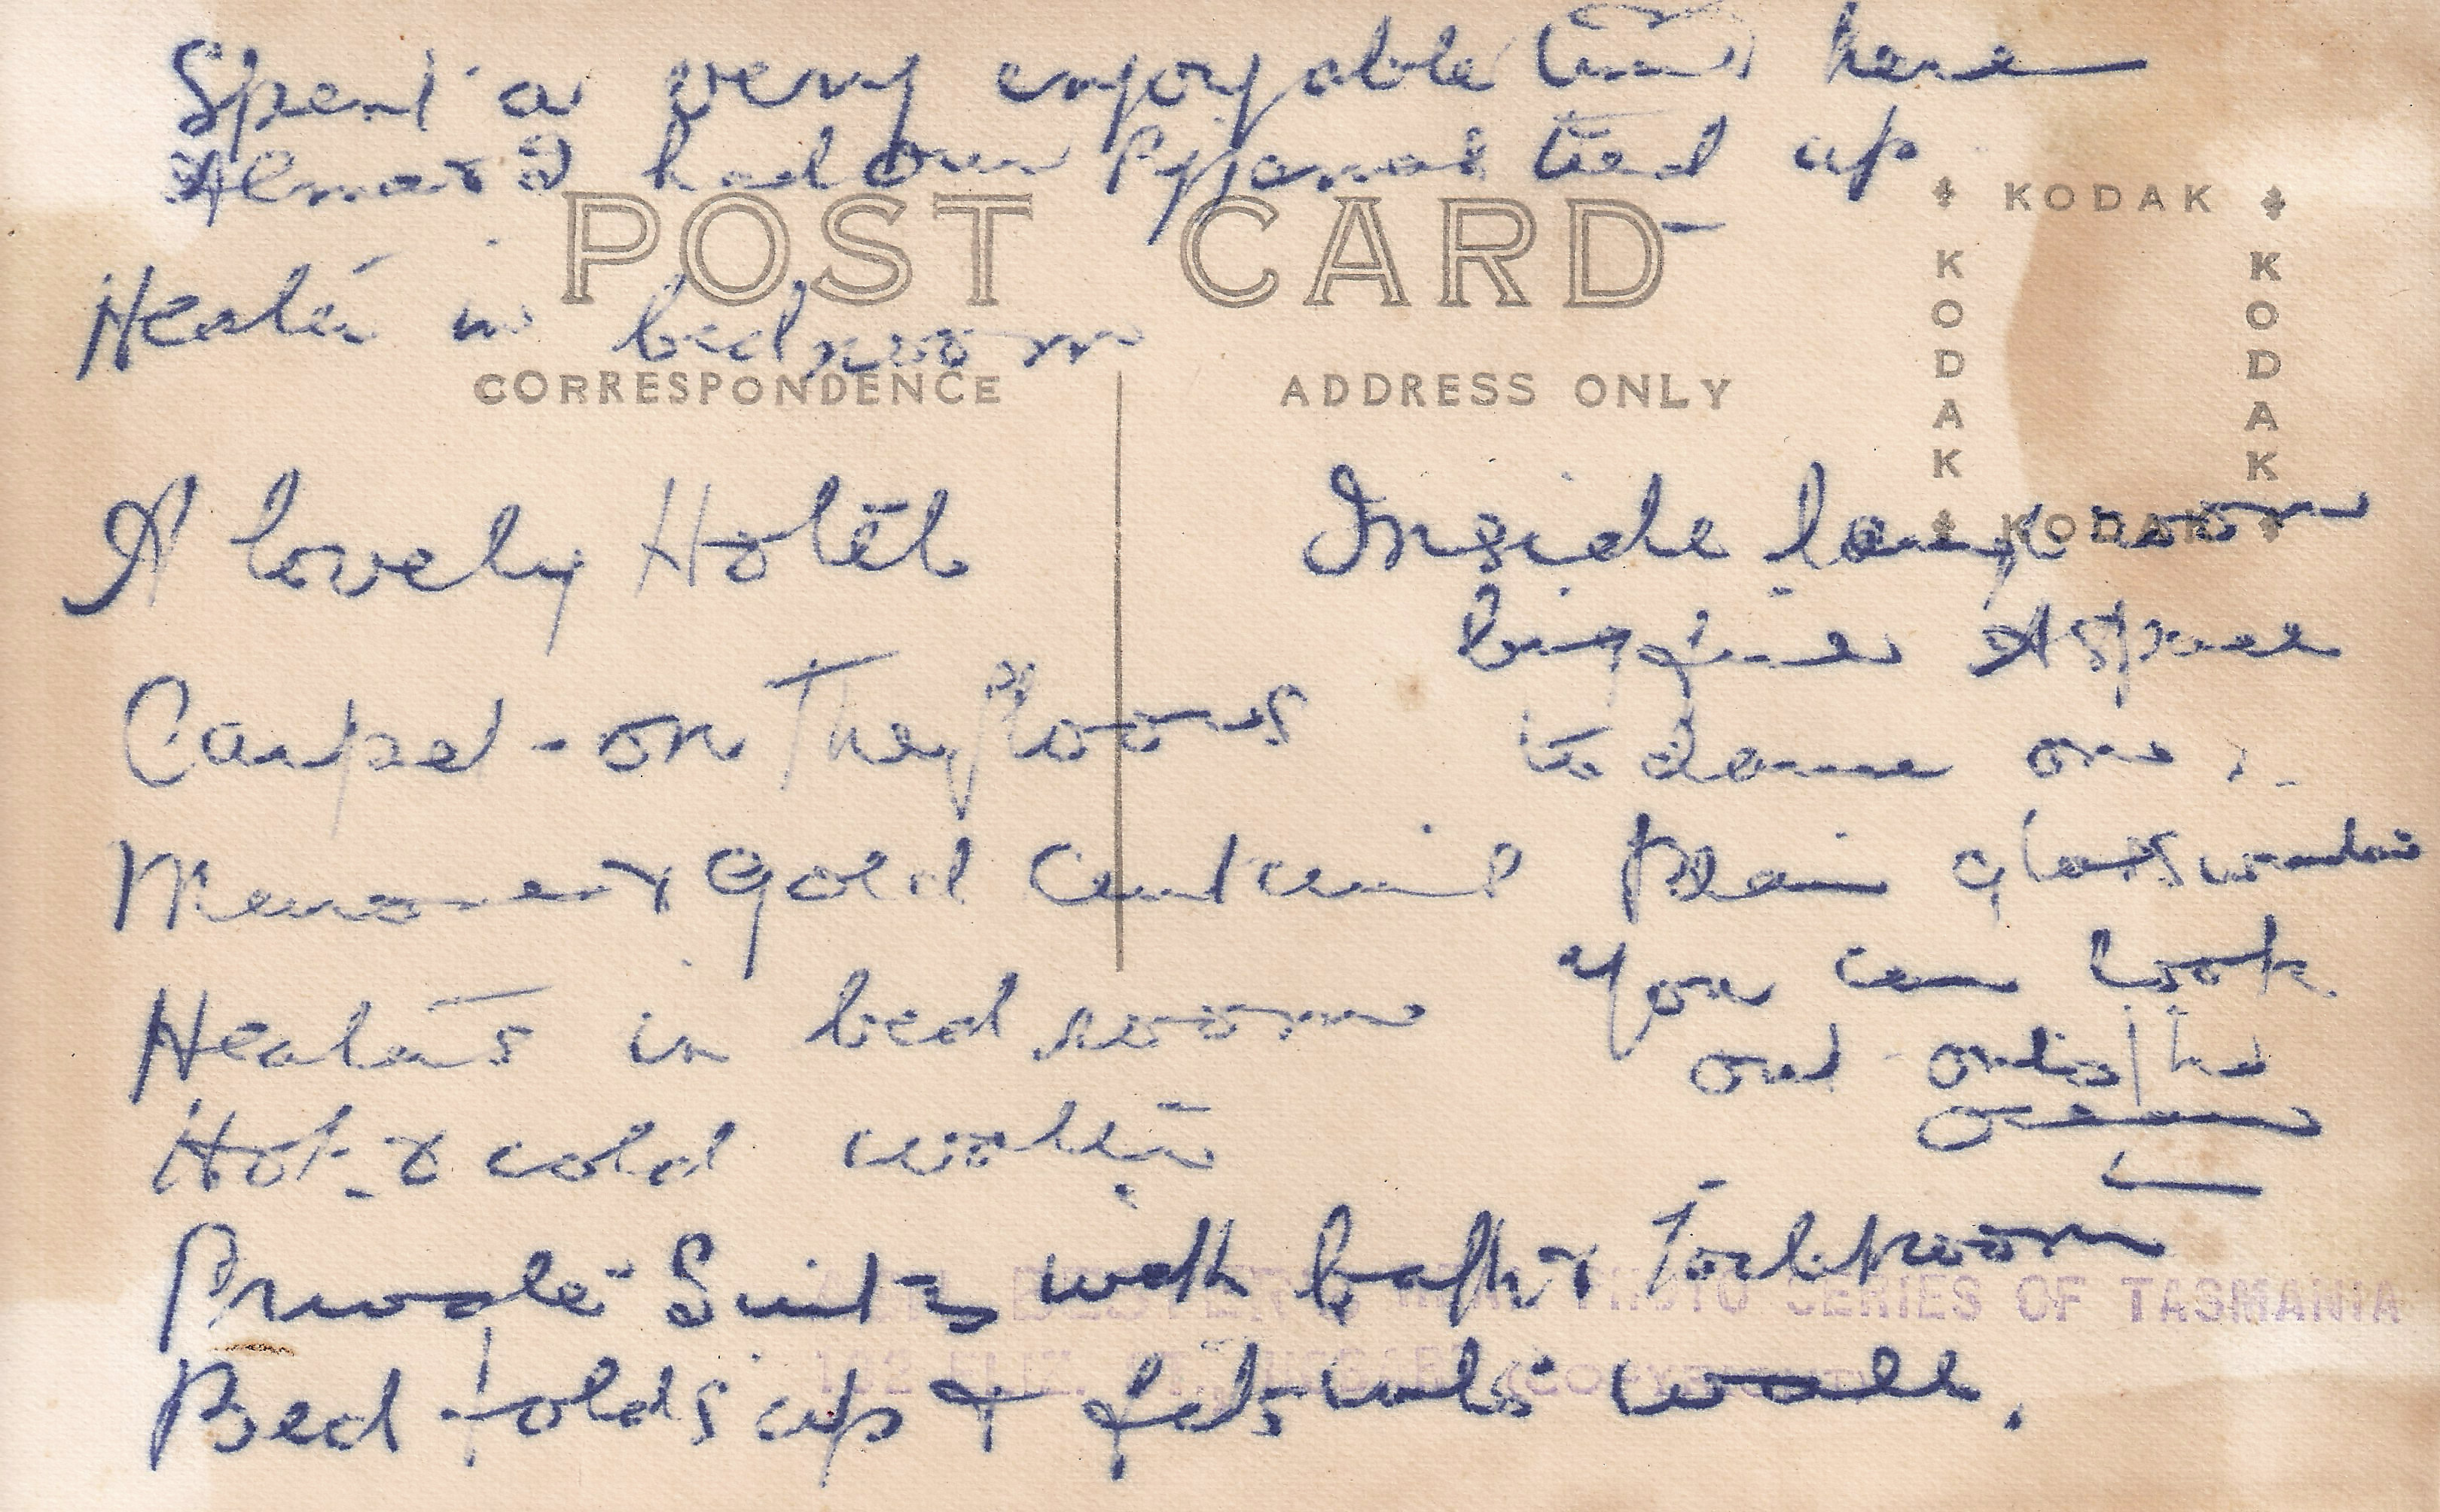 Spent a very enjoyable time here
Almost had our Pyjamas tied up
POST CARD
KODAK
KODAK
KODAK
KODAK
Heater in bedroom
CORRESPONDENCE
ADDRESS ONLY
A lovely Hotel
Carpet - on the floors
Maroon & Gold Curtains
Heaters in bed room
Hot & cold water
Inside lounge room
big fire & space
to dance on.
Plain glass window
you can look
out onto the
ocean
Private Suite with bath & Toiletroom
PHOTO SERIES OF TASMANIA
Bed folds up & fits into wall.